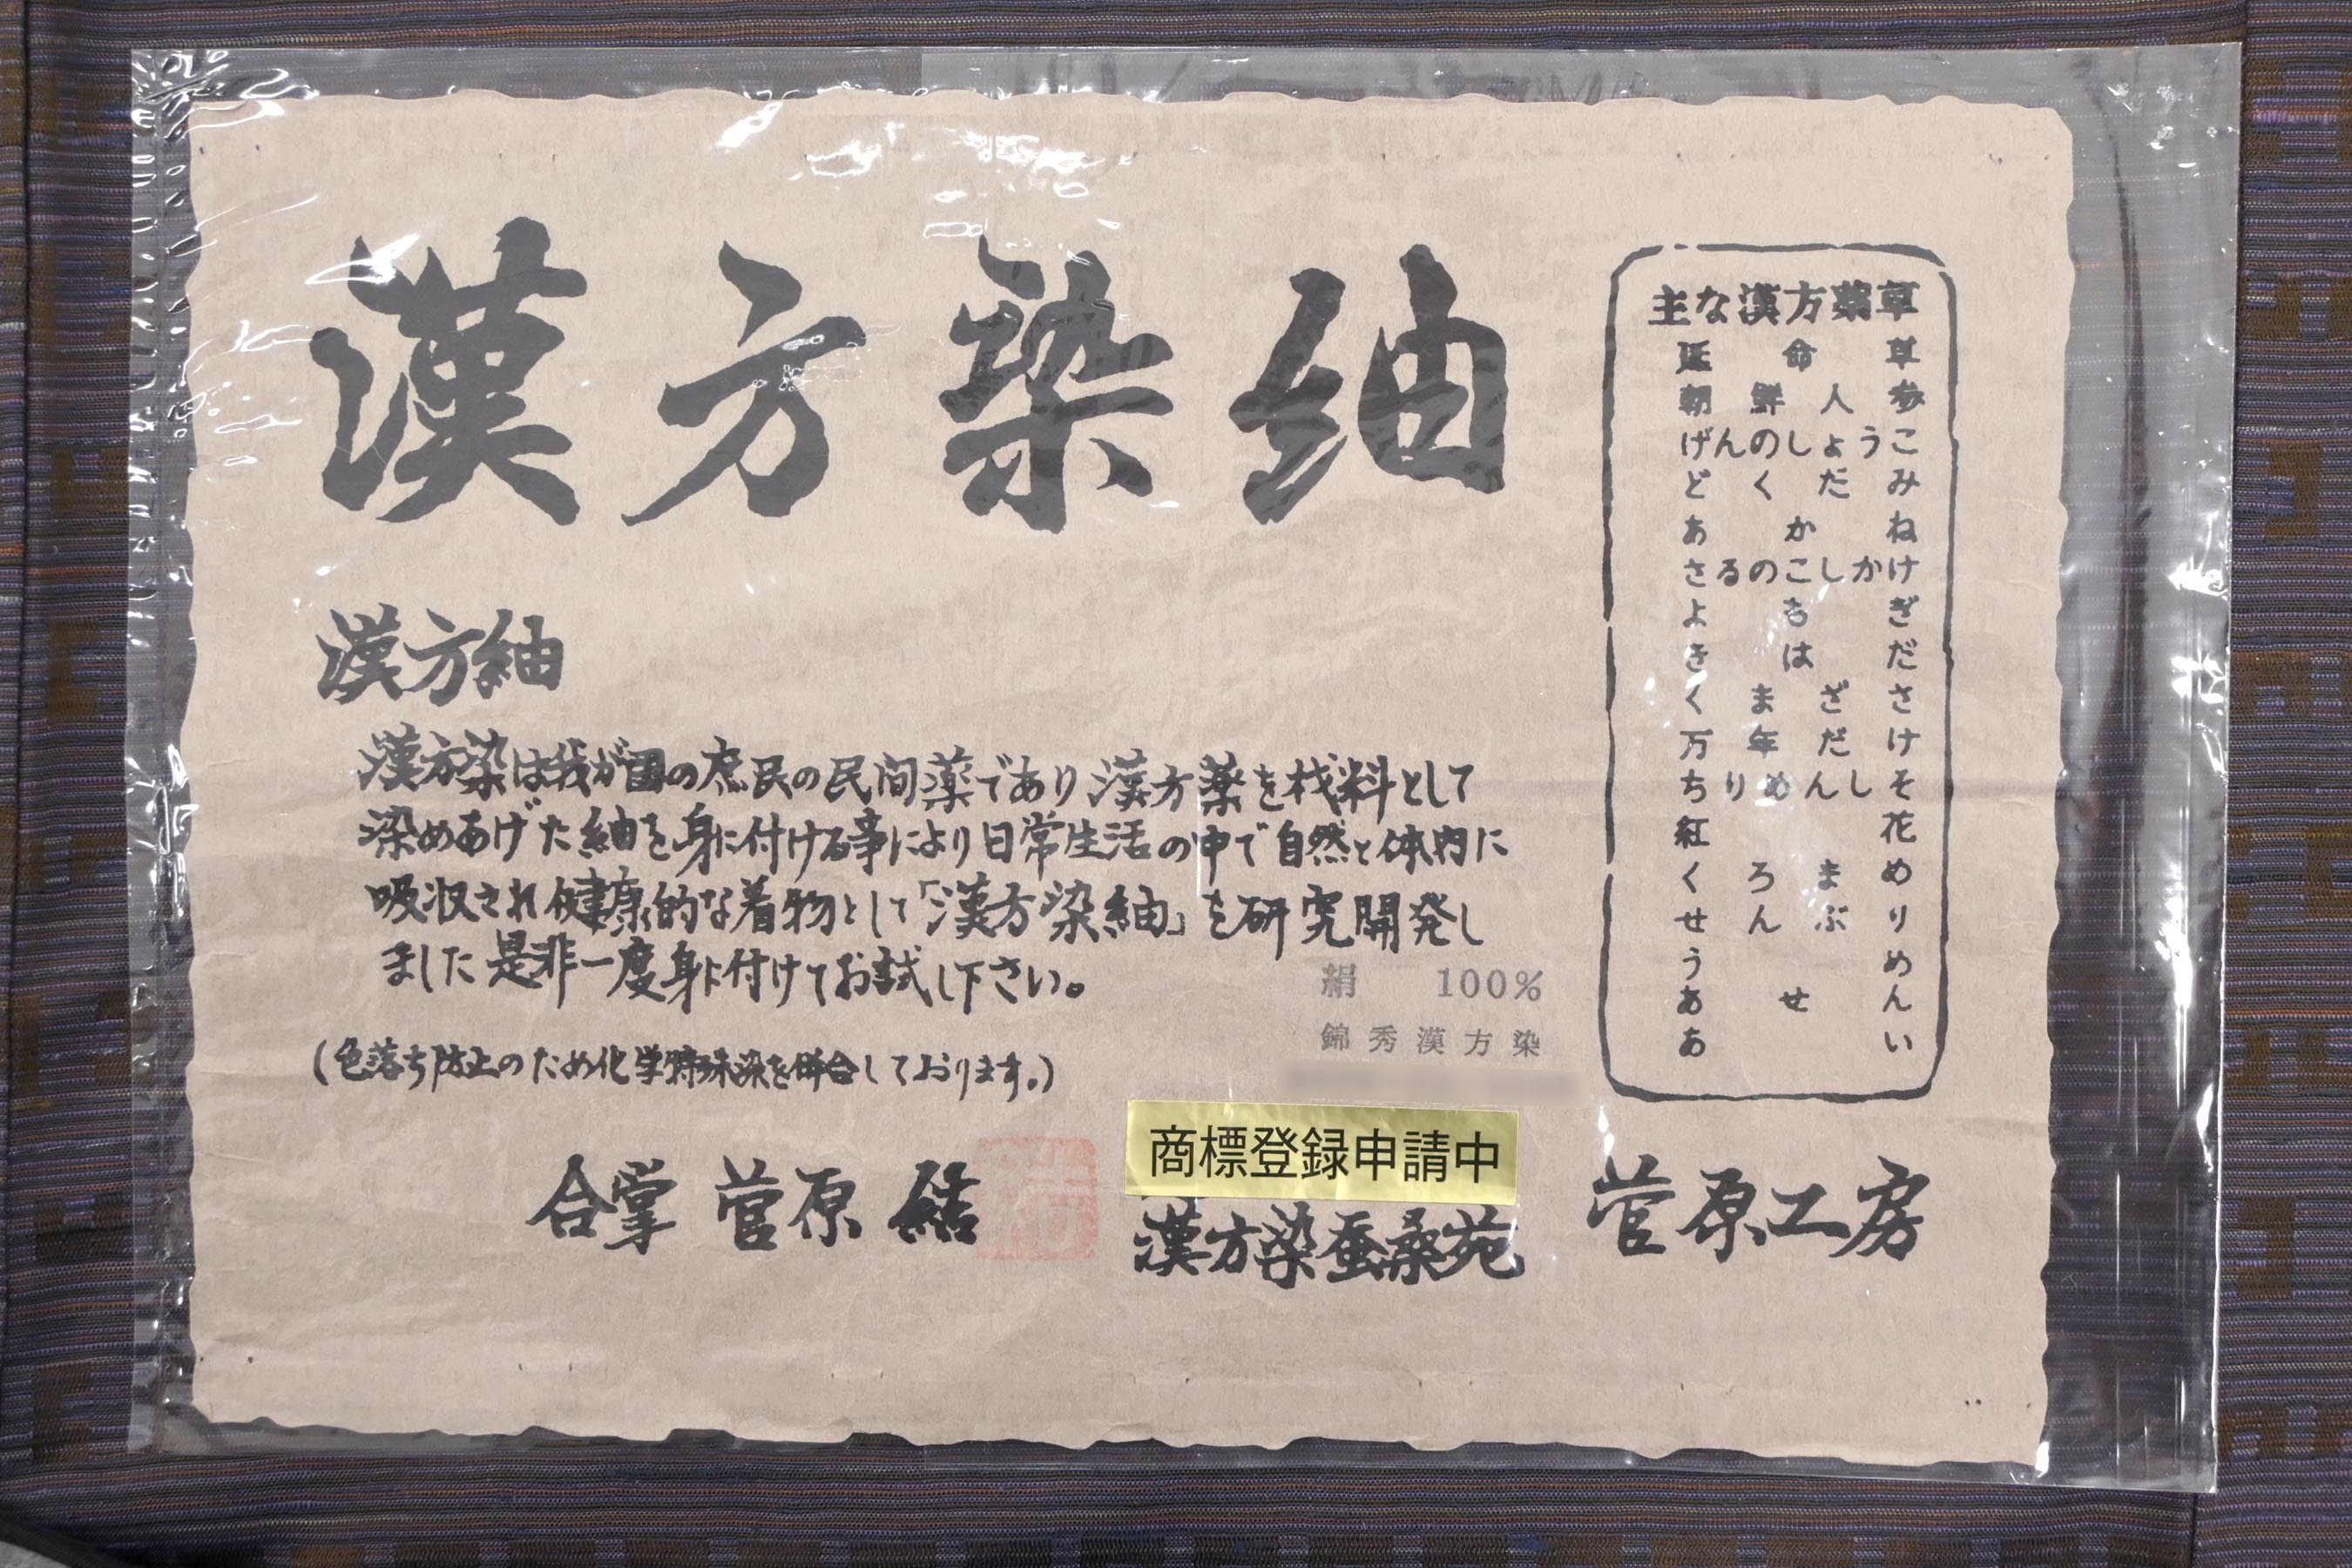 漢方染紬
漢方紬
漢方染は我が国の庶民の民間薬であり漢方薬を材料として
染めあげた紬を身に付ける事により日常生活の中で自然と体内に
吸収され健康的な着物として「漢方染紬」を研究開発し
ました是非一度身に付けてお試し下さい。
(色落ち防止のため化学特殊染を併合しております。)
絹 100%
錦秀漢方染
商標登録申請中
合掌 菅原 結
漢方染蚕桑苑
菅原工房
主な漢方薬草
延命草
朝鮮人参
げんのしょうこ
どくだみ
あかね
さるのこしかけ
よもぎ
きはだ
くまざさ
万年だけ
ちりめんしそ
紅花
くろまめ
せんぶり
うめ
あせん
あい